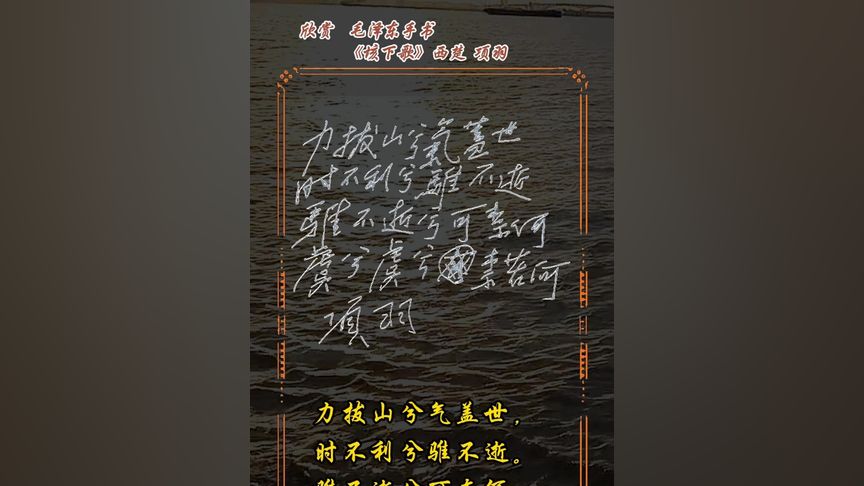 欣赏 毛泽东手书
《垓下歌》西楚 项羽
力拔山兮气蓋世
时不利兮騅不逝
騅不逝兮可柰何
虞兮虞兮柰若何
項羽
力拔山兮气盖世，
时不利兮骓不逝。
骓不逝兮可奈何